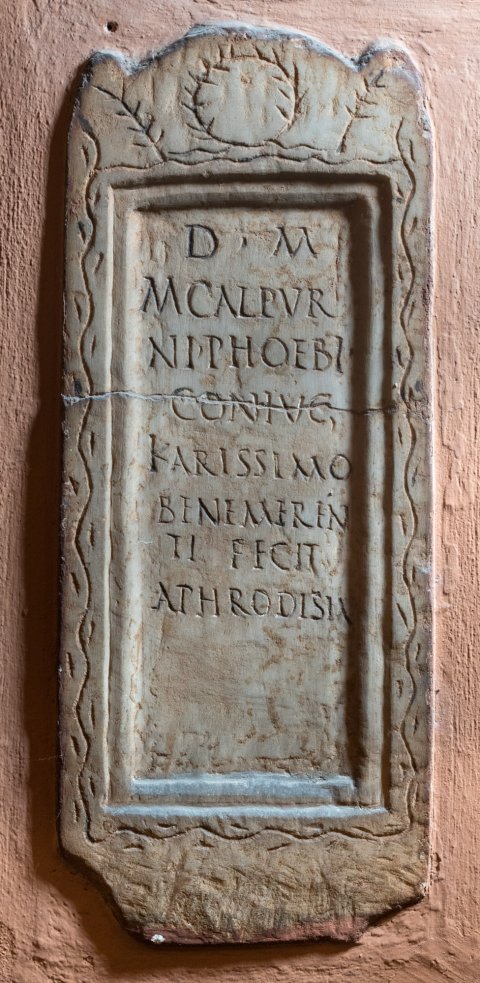 D · M
M CALPVR
NI·PHOEBI
CONIVG·
KARISSIMO
BENEMEREN
TI FECIT
APHRODISIA